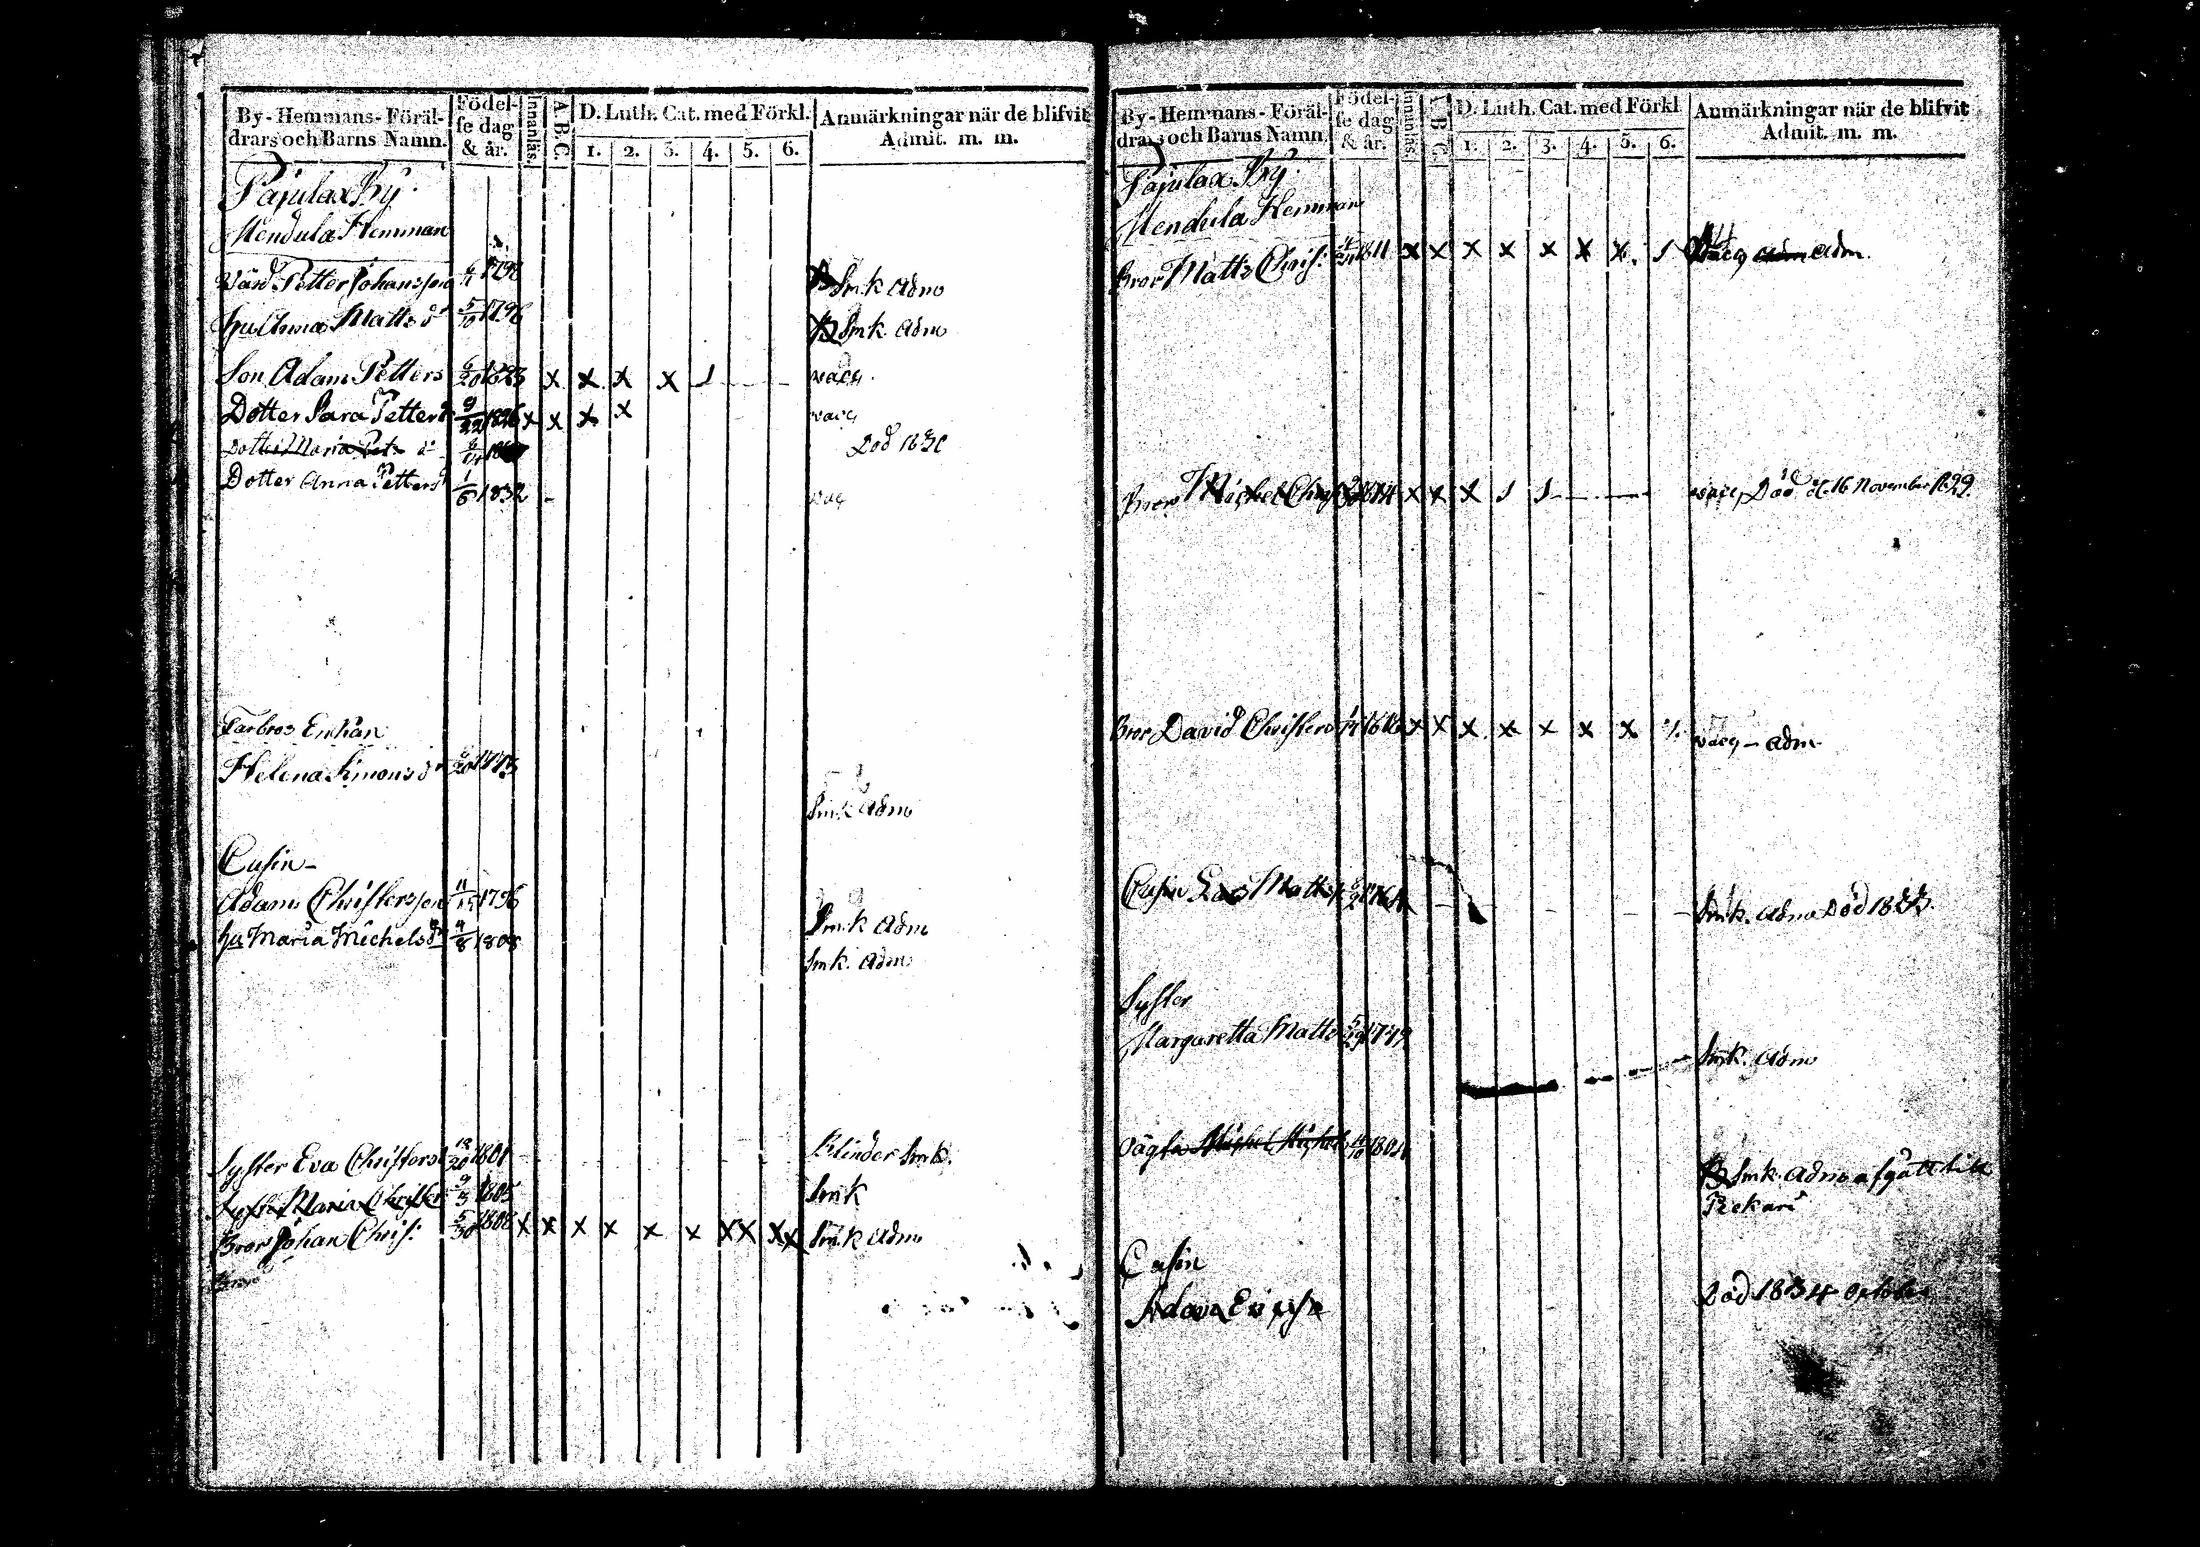 By- Hemmans- Föräl-
drars och Barns Namn.
Födel-
se dag
& år.
Innanläs.
A.B.C.
D. Luth. Cat. med Förkl.
1. 2. 3. 4. 5. 6.
Anmärkningar när de blifvit
Admit. m. m.
Pajulax By.
Mendula Hemman
Petter Johansson 1798 Smk Adm
Hustru Matts dr 5/10 1796 Smk. Adm
Son Adam Petters 1823 x x x x vacc.
Dotter Sara Petters 9/22 1826 x x x x vacc
Dotter Maria Död 1830
Dotter Anna Petters 1/6 1832 vac
Farbros Enkan
Helena Simons dr 1773
Smk Adm
Cusin-
Adam Christersson 11/15 1796 Smk Adm
Hu Maria Michels dr 4/8 1808 Smk. Adm
Syster Eva Christers 12/20 1801 Blinder Smk.
Syster Maria Christer 9/3 1805 Smk
Bror Johan Chris: 5/30 1808 x x x x x x x x x x Smk Adm
By- Hemmans- Föräl-
drars och Barns Namn.
Födel-
se dag
& år.
Innanläs.
A. B. C.
D. Luth. Cat. med Förkl
1. 2. 3. 4. 5. 6.
Anmärkningar när de blifvit
Admit. m. m.
Pajulax By.
Mendula Hemman
Bror Matts Chris: 1811 x x x x x x x vacc adm Adm.
Bror Michel Chris 1814 x x x vacc, Död d. 16 November 1829.
Bror David Christers x x x x x x x vacc - adm
Cusin Matts Smk. Adm Död
Syster
Margaretta Matts 5/29 1779
Smk. Adm
Michel Michels 1804
Smk. Adm afgått till
Pekari
Cusin
Adam Död 1834 October